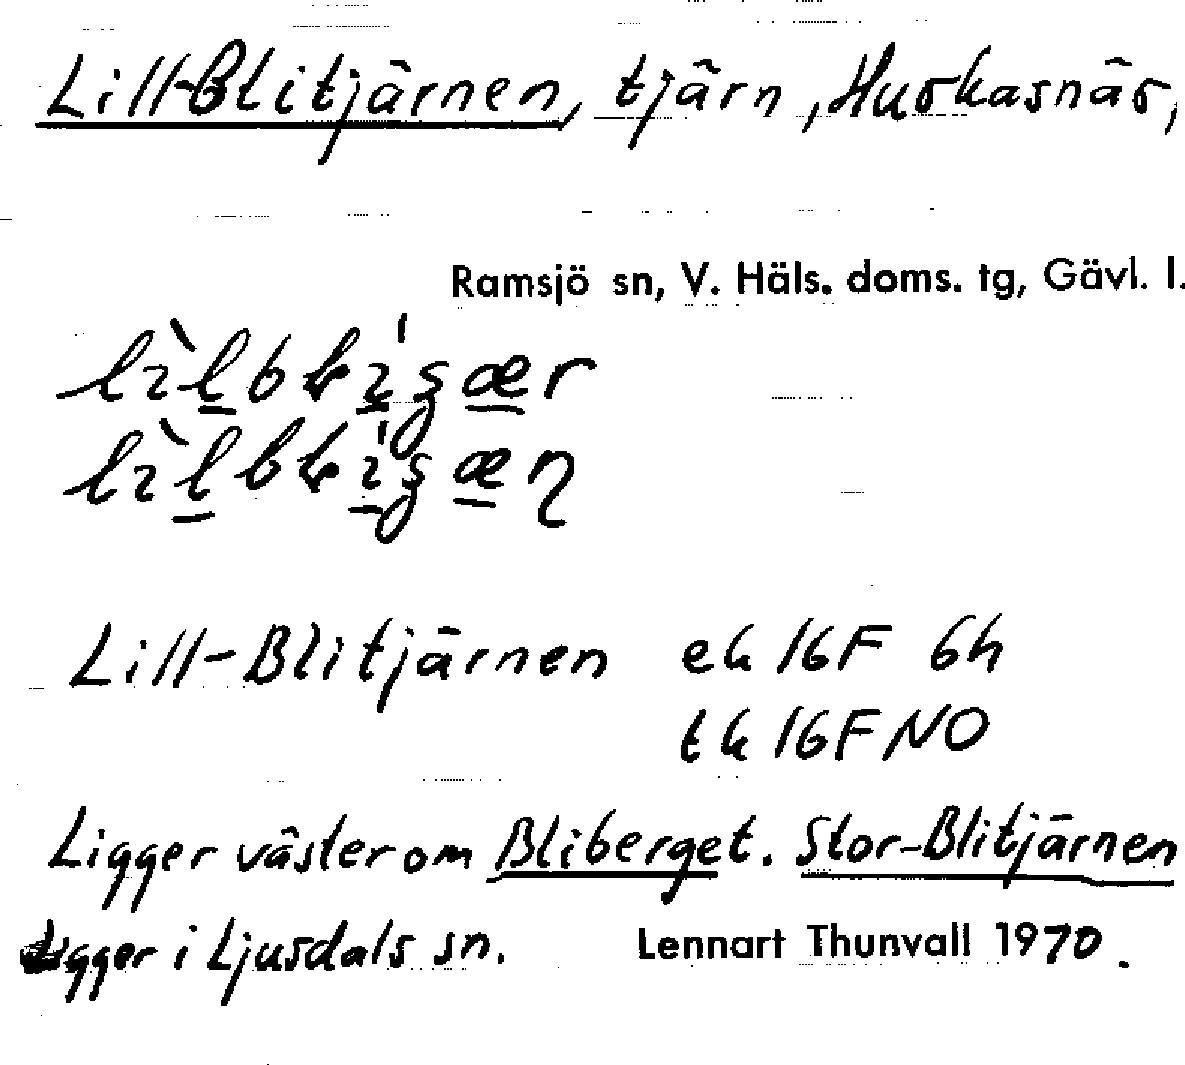 Lill-Blitjärnen, tjärn, Huskasnäs,
Ramsjö sn, V. Häls. doms. tg, Gävl. l.
Lill-Blitjärnen ek 16F 6h
tk 16F NO
Ligger väster om Bliberget. Stor-Blitjärnen
ligger i Ljusdals sn. Lennart Thunvall 1970.